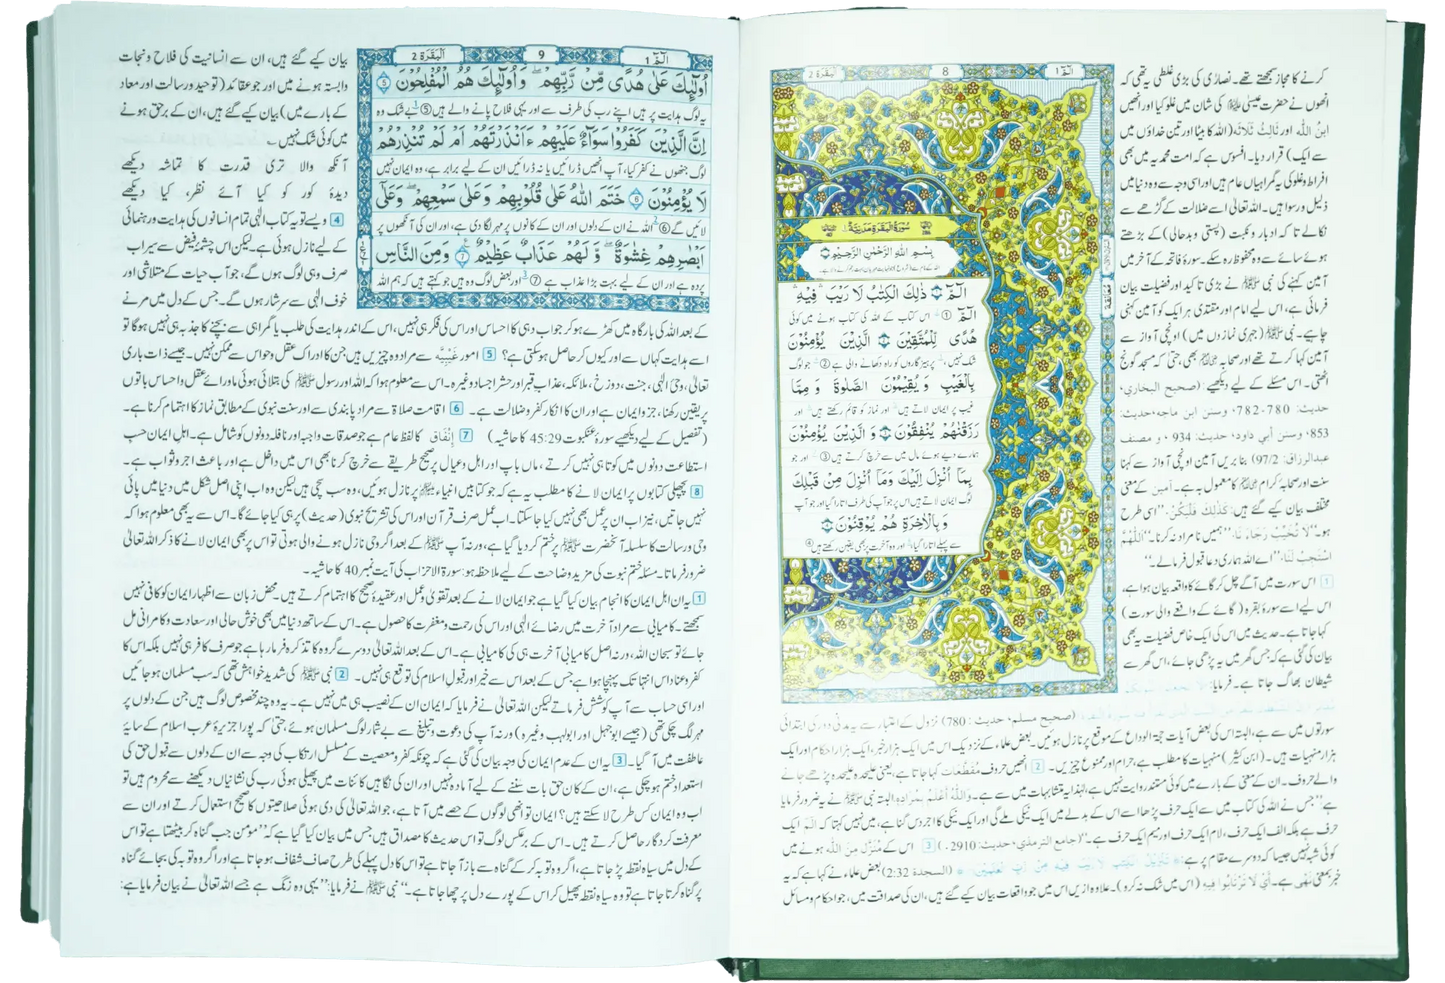 الٓمّٓ ١
8
البقرة 2
کرنے کا مجاز سمجھتے تھے۔ نصاریٰ کی بڑی غلطی یہ تھی کہ
انھوں نے حضرت عیسیٰ ﷤ کی شان میں غلو کیا اور انھیں
ابنُ اللّٰہ اور ثَالِثُ ثَلَاثَه (اللہ کا بیٹا اور تین خداؤں میں
سے ایک) قرار دیا۔ افسوس ہے کہ امت محمدیہ میں بھی
افراط و غلو کی یہ گمراہیاں عام ہیں اور اسی وجہ سے وہ دنیا میں
ذلیل و رسوا ہیں۔ اللہ تعالیٰ اسے ضلالت کے گڑھے سے
نکالے تاکہ ادبار و نکبت (پستی و بدحالی) کے بڑھتے
ہوئے سائے سے وہ محفوظ رہ سکے۔ سورۂ فاتحہ کے آخر میں
آمین کہنے کی نبی ﷺ نے بڑی تاکید اور فضیلت بیان
فرمائی ہے، اس لیے امام اور مقتدی ہر ایک کو آمین کہنی
چاہیے۔ نبی ﷺ (جہری نمازوں میں) اونچی آواز سے
آمین کہا کرتے تھے اور صحابہ بھی، حتیٰ کہ مسجد گونج
اٹھتی۔ اس مسئلے کے لیے دیکھیے: (صحيح البخاري،
حدیث: 780-782، وسنن ابن ماجه، حدیث:
853، وسنن أبي داود، حدیث: 934، و مصنف
عبدالرزاق: 97/2) بنا بریں آمین اونچی آواز سے کہنا
سنت اور صحابہ کرام کا معمول بہ ہے۔ آمین کے معنی
مختلف بیان کیے گئے ہیں: كَذٰلِكَ فَلْيَكُنْ۔ ''اسی طرح
ہو۔'' لَا تُخَيِّبْ رَجَاءَنَا۔ ''ہمیں نامراد نہ کرنا۔'' اَللّٰهُمَّ
اسْتَجِبْ لَنَا۔ ''اے اللہ ہماری دعا قبول فرمالے۔''
1 اس سورت میں آگے چل کر گائے کا واقعہ بیان ہوا ہے،
اس لیے اسے سورۂ بقرہ (گائے کے واقعے والی سورت)
کہا جاتا ہے۔ حدیث میں اس کی ایک خاص فضیلت یہ بھی
بیان کی گئی ہے کہ جس گھر میں یہ پڑھی جائے، اس گھر سے
شیطان بھاگ جاتا ہے۔ فرمایا:
سُوْرَةُ الْبَقَرَةِ مَدَنِيَّةٌ
بِسْمِ اللّٰهِ الرَّحْمٰنِ الرَّحِيْمِ
الٓمّٓ ۚ ذٰلِكَ الْكِتٰبُ لَا رَيْبَ ۛ فِيْهِ ۛ
الٓمّٓ ① اس کتاب کے اللہ کی کتاب ہونے میں کوئی
هُدًى لِّلْمُتَّقِيْنَ الَّذِيْنَ يُؤْمِنُوْنَ
شک نہیں، پرہیزگاروں کو راہ دکھانے والی ہے ② جو لوگ
بِالْغَيْبِ وَيُقِيْمُوْنَ الصَّلٰوةَ وَمِمَّا
غیب پر ایمان لاتے ہیں اور نماز کو قائم رکھتے ہیں اور
رَزَقْنٰهُمْ يُنْفِقُوْنَ وَالَّذِيْنَ يُؤْمِنُوْنَ
ہمارے دیے ہوئے مال میں سے خرچ کرتے ہیں ③ اور جو
بِمَآ اُنْزِلَ اِلَيْكَ وَمَآ اُنْزِلَ مِنْ قَبْلِكَ
لوگ ایمان لاتے ہیں اس پر جو آپ کی طرف اتارا گیا اور جو آپ
وَبِالْاٰخِرَةِ هُمْ يُوْقِنُوْنَ
سے پہلے اتارا گیا اور وہ آخرت پر بھی یقین رکھتے ہیں ④
(صحيح مسلم، حدیث: 780) نزول کے اعتبار سے یہ مدنی دور کی ابتدائی
سورتوں میں سے ہے، البتہ اس کی بعض آیات حجۃ الوداع کے موقع پر نازل ہوئیں۔ بعض علماء کے نزدیک اس میں ایک ہزار خبر، ایک ہزار احکام اور ایک
ہزار منہیات ہیں۔ (ابن کثیر) منہیات کا مطلب ہے، حرام اور ممنوع چیزیں۔ 2 انھیں حروف مقطعات کہا جاتا ہے، یعنی علیحدہ علیحدہ پڑھے جانے
والے حروف۔ ان کے معنی کے بارے میں کوئی مستند روایت نہیں ہے، لہٰذا یہ متشابہات میں سے ہے۔ وَاللّٰهُ أَعْلَمُ بِمُرَادِهِ البتہ نبی ﷺ نے یہ ضرور فرمایا
ہے ''جس نے اللہ کی کتاب میں سے ایک حرف پڑھا اسے اس کے بدلے میں ایک نیکی ملے گی اور ایک نیکی کا اجر دس گنا ہے، میں نہیں کہتا کہ الٓمٓ ایک
حرف ہے بلکہ الف ایک حرف، لام ایک حرف اور میم ایک حرف ہے۔'' (جامع الترمذي، حدیث: 2910۔) 3 اس کے مُنَزَّل مِنَ اللّٰه ہونے میں
کوئی شبہ نہیں جیسا کہ دوسرے مقام پر ہے: ﴿تَنْزِيْلُ الْكِتٰبِ لَا رَيْبَ فِيْهِ مِنْ رَّبِّ الْعٰلَمِيْنَ﴾ (السجدة 2:32) بعض علماء نے کہا ہے کہ یہ
خبر بمعنی نہی ہے۔ أَيْ لَا تَرْتَابُوا فِيهِ (اس میں شک نہ کرو)۔ علاوہ ازیں اس میں جو واقعات بیان کیے گئے ہیں، ان کی صداقت میں، جو احکام و مسائل
الٓمّٓ ١
9
البقرة 2
بیان کیے گئے ہیں، ان سے انسانیت کی فلاح و نجات
وابستہ ہونے میں اور جو عقائد (توحید و رسالت اور معاد
کے بارے میں) بیان کیے گئے ہیں، ان کے برحق ہونے
میں کوئی شک نہیں۔
آنکھ والا تری قدرت کا تماشہ دیکھے
دیدۂ کور کو کیا آئے نظر، کیا دیکھے
4 ویسے تو یہ کتاب الٰہی تمام انسانوں کی ہدایت و رہنمائی
کے لیے نازل ہوئی ہے۔ لیکن اس چشمۂ فیض سے سیراب
صرف وہی لوگ ہوں گے، جو آب حیات کے متلاشی اور
خوف الٰہی سے سرشار ہوں گے۔ جس کے دل میں مرنے
اُولٰٓئِكَ عَلٰى هُدًى مِّنْ رَّبِّهِمْ ۗ وَاُولٰٓئِكَ هُمُ الْمُفْلِحُوْنَ
یہ لوگ ہدایت پر ہیں اپنے رب کی طرف سے اور یہی فلاح پانے والے ہیں ⑤ بے شک وہ
اِنَّ الَّذِيْنَ كَفَرُوْا سَوَآءٌ عَلَيْهِمْ ءَاَنْذَرْتَهُمْ اَمْ لَمْ تُنْذِرْهُمْ
لوگ جنھوں نے کفر کیا، آپ انھیں ڈرائیں یا نہ ڈرائیں ان کے لیے برابر ہے، وہ ایمان نہیں
لَا يُؤْمِنُوْنَ خَتَمَ اللّٰهُ عَلٰى قُلُوْبِهِمْ وَعَلٰى سَمْعِهِمْ ۗ وَعَلٰٓى
لائیں گے ⑥ اللہ نے ان کے دلوں اور ان کے کانوں پر مہر لگا دی ہے، اور ان کی آنکھوں پر
اَبْصَارِهِمْ غِشَاوَةٌ ۗ وَّلَهُمْ عَذَابٌ عَظِيْمٌ وَمِنَ النَّاسِ
پردہ ہے اور ان کے لیے بہت بڑا عذاب ہے ⑦ اور بعض لوگ وہ ہیں جو کہتے ہیں کہ ہم اللہ
کے بعد اللہ کی بارگاہ میں کھڑے ہو کر جواب دہی کا احساس اور اس کی فکر ہی نہیں، اس کے اندر ہدایت کی طلب یا گمراہی سے بچنے کا جذبہ ہی نہیں ہوگا تو
اسے ہدایت کہاں سے اور کیوں کر حاصل ہو سکتی ہے؟ 5 امور غَيْبِيَّه سے مراد وہ چیزیں ہیں جن کا ادراک عقل و حواس سے ممکن نہیں۔ جیسے ذات باری
تعالیٰ، وحی الٰہی، جنت، دوزخ، ملائکہ، عذاب قبر اور حشر اجساد وغیرہ۔ اس سے معلوم ہوا کہ اللہ اور رسول ﷺ کی بتلائی ہوئی ماورائے عقل و احساس باتوں
پر یقین رکھنا، جزو ایمان ہے اور ان کا انکار کفر و ضلالت ہے۔ 6 اقامت صلاۃ سے مراد پابندی سے اور سنت نبوی کے مطابق نماز کا اہتمام کرنا ہے۔
(تفصیل کے لیے دیکھیے سورۂ عنکبوت 45:29 کا حاشیہ) 7 إِنْفَاق کا لفظ عام ہے جو صدقات واجبہ اور نافلہ دونوں کو شامل ہے۔ اہل ایمان حسب
استطاعت دونوں میں کوتاہی نہیں کرتے، ماں باپ اور اہل و عیال پر صحیح طریقے سے خرچ کرنا بھی اس میں داخل ہے اور باعث اجر و ثواب ہے۔
8 پچھلی کتابوں پر ایمان لانے کا مطلب یہ ہے کہ جو کتابیں انبیاء پر نازل ہوئیں، وہ سب سچی ہیں لیکن وہ اب اپنی اصل شکل میں دنیا میں پائی
نہیں جاتیں، نیز اب ان پر عمل بھی نہیں کیا جا سکتا۔ اب عمل صرف قرآن اور اس کی تشریح نبوی (حدیث) پر ہی کیا جائے گا۔ اس سے یہ بھی معلوم ہوا کہ
وحی و رسالت کا سلسلہ آنحضرت ﷺ پر ختم کر دیا گیا ہے، ورنہ آپ ﷺ کے بعد اگر وحی نازل ہونے والی ہوتی تو اس پر بھی ایمان لانے کا ذکر اللہ تعالیٰ
ضرور فرماتا۔ مسئلہ ختم نبوت کی مزید وضاحت کے لیے ملاحظہ ہو: سورۃ الاحزاب کی آیت نمبر 40 کا حاشیہ۔
1 یہ ان اہل ایمان کا انجام بیان کیا گیا ہے جو ایمان لانے کے بعد تقویٰ و عمل اور عقیدۂ صحیحہ کا اہتمام کرتے ہیں۔ محض زبان سے اظہار ایمان کو کافی نہیں
سمجھتے۔ کامیابی سے مراد آخرت میں رضائے الٰہی اور اس کی رحمت و مغفرت کا حصول ہے۔ اس کے ساتھ دنیا میں بھی خوش حالی اور سعادت و کامرانی مل
جائے تو سبحان اللہ، ورنہ اصل کامیابی آخرت ہی کی کامیابی ہے۔ اس کے بعد اللہ تعالیٰ دوسرے گروہ کا تذکرہ فرما رہا ہے جو صرف کافر ہی نہیں بلکہ اس کا
کفر و عناد اس انتہا تک پہنچا ہوا ہے جس کے بعد اس سے خیر اور قبول اسلام کی توقع ہی نہیں۔ 2 نبی ﷺ کی شدید خواہش تھی کہ سب مسلمان ہو جائیں
اور اسی حساب سے آپ کوشش فرماتے لیکن اللہ تعالیٰ نے فرمایا کہ ایمان ان کے نصیب ہی میں نہیں ہے۔ یہ وہ چند مخصوص لوگ ہیں جن کے دلوں پر
مہر لگ چکی تھی (جیسے ابوجہل اور ابولہب وغیرہ) ورنہ آپ کی دعوت و تبلیغ سے بے شمار لوگ مسلمان ہوئے، حتیٰ کہ پورا جزیرۂ عرب اسلام کے سایۂ
عاطفت میں آ گیا۔ 3 یہ ان کے عدم ایمان کی وجہ بیان کی گئی ہے کہ چونکہ کفر و معصیت کے مسلسل ارتکاب کی وجہ سے ان کے دلوں سے قبول حق کی
استعداد ختم ہو چکی ہے، ان کے کان حق بات سننے کے لیے آمادہ نہیں اور ان کی نگاہیں کائنات میں پھیلی ہوئی رب کی نشانیاں دیکھنے سے محروم ہیں تو
اب وہ ایمان کس طرح لا سکتے ہیں؟ ایمان تو انھی لوگوں کے حصے میں آتا ہے، جو اللہ تعالیٰ کی دی ہوئی صلاحیتوں کا صحیح استعمال کرتے اور ان سے
معرفت کردگار حاصل کرتے ہیں۔ اس کے برعکس لوگ تو اس حدیث کا مصداق ہیں جس میں بیان کیا گیا ہے کہ ''مؤمن جب گناہ کر بیٹھتا ہے تو اس
کے دل میں سیاہ نقطہ پڑ جاتا ہے، اگر وہ توبہ کر کے گناہ سے باز آ جاتا ہے تو اس کا دل پہلے کی طرح صاف شفاف ہو جاتا ہے اور اگر وہ توبہ کی بجائے گناہ
پر گناہ کرتا جاتا ہے تو وہ سیاہ نقطہ پھیل کر اس کے پورے دل پر چھا جاتا ہے۔'' نبی ﷺ نے فرمایا: ''یہی وہ زنگ ہے جسے اللہ تعالیٰ نے بیان فرمایا ہے: